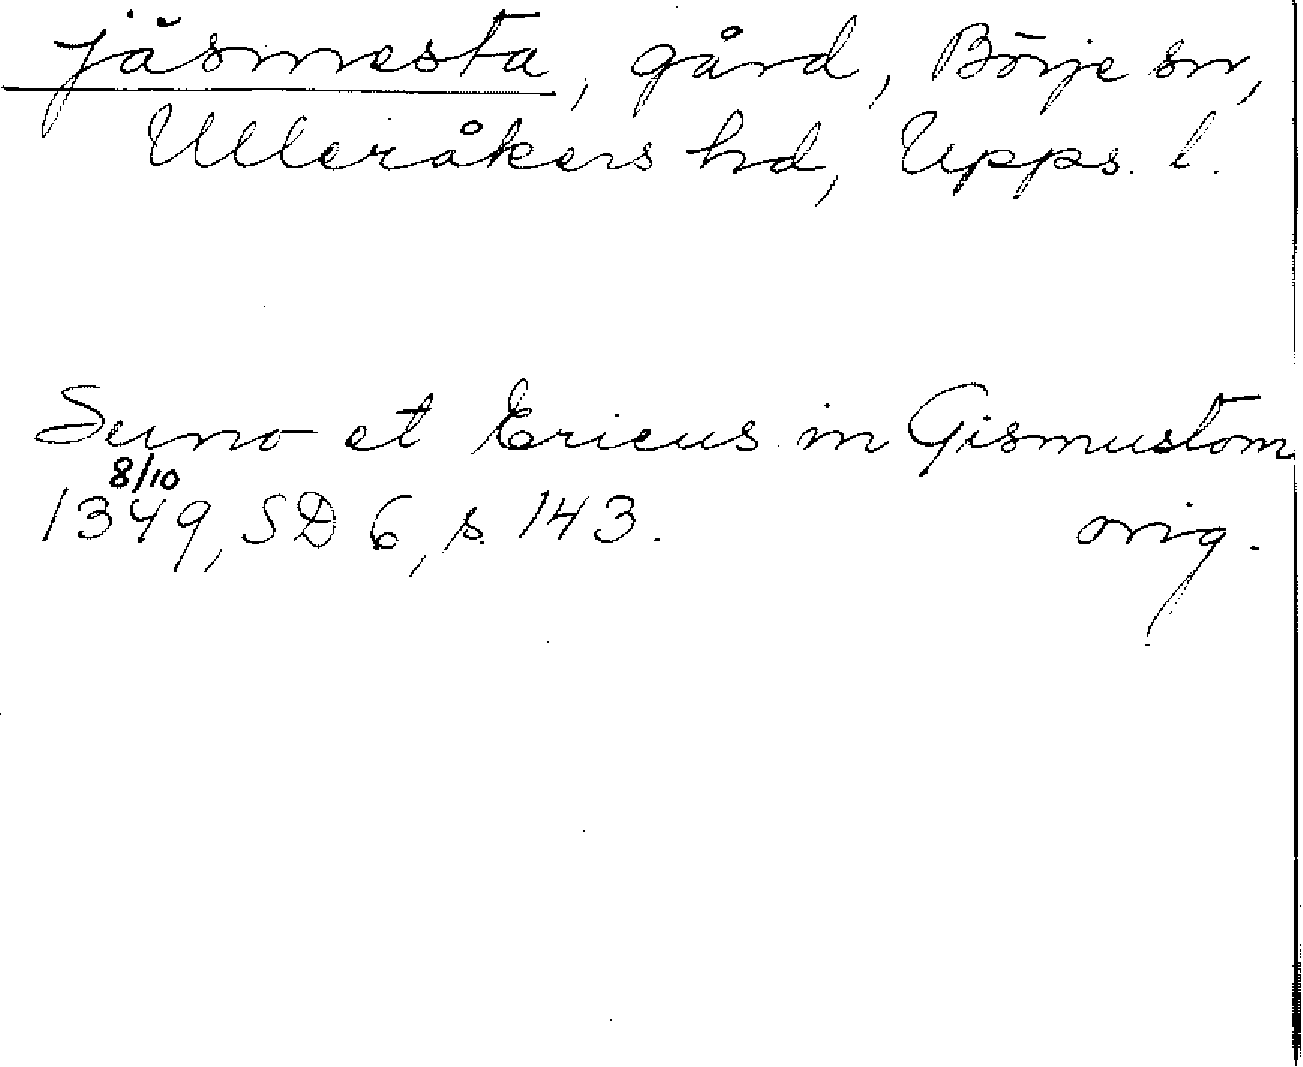 Jäsmesta, gård, Börje sn,
Ulleråkers hd, Upps. l.
Suno et Ericus in Gismustom
8/10
1349, SD 6, s. 143. orig.